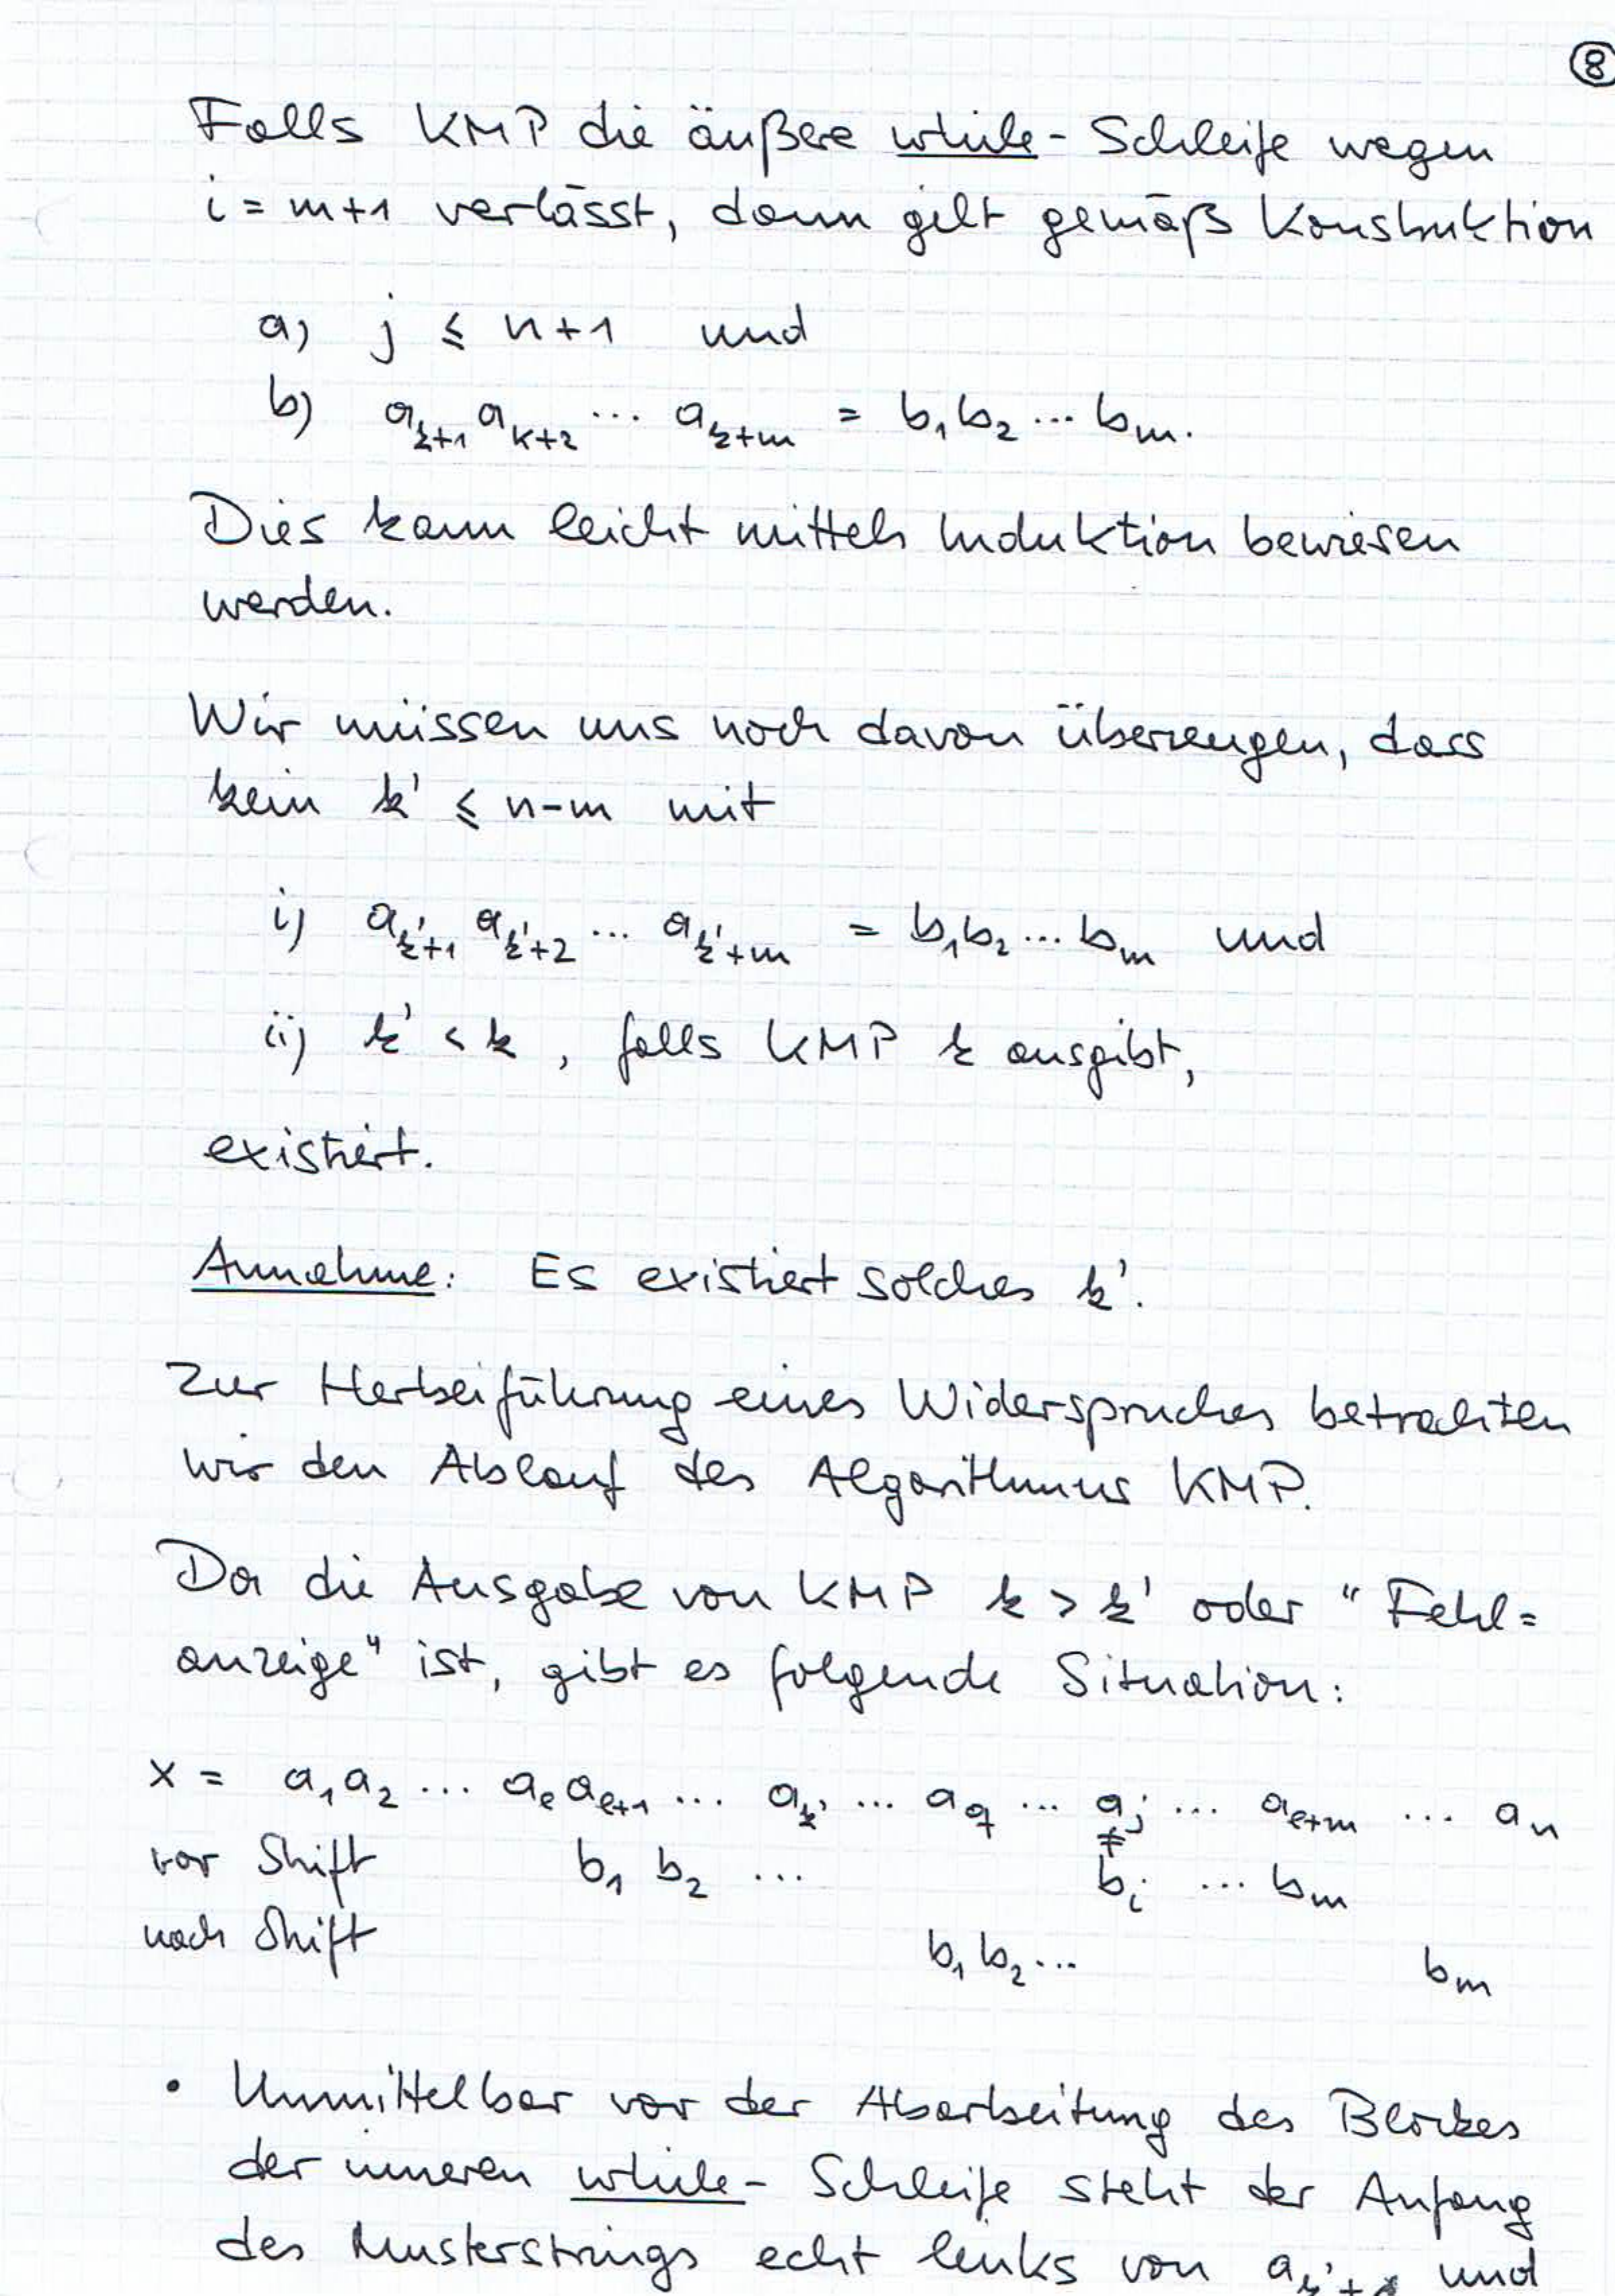 8
Falls KMP die äußere while-Schleife wegen
i = m+1 verlässt, dann gilt gemäß Konstruktion
a) j ≤ n+1 und
b) a_{k+1} a_{k+2} ... a_{k+m} = b_1 b_2 ... b_m.
Dies kann leicht mittels Induktion bewiesen
werden.
Wir müssen uns noch davon überzeugen, dass
kein k' ≤ n-m mit
i) a_{k'+1} a_{k'+2} ... a_{k'+m} = b_1 b_2 ... b_m und
ii) k' < k, falls KMP k ausgibt,
existiert.
Annahme: Es existiert solches k'.
Zur Herbeiführung eines Widerspruches betrachten
wir den Ablauf des Algorithmus KMP.
Da die Ausgabe von KMP k > k' oder "Fehl=
anzeige" ist, gibt es folgende Situation:
x = a_1 a_2 ... a_e a_{e+1} ... a_{k'} ... a_q ... a_j ... a_{e+m} ... a_n
≠
vor Shift b_1 b_2 ... b_i ... b_m
nach Shift b_1 b_2 ... b_m
• Unmittelbar vor der Abarbeitung des Blockes
der inneren while-Schleife steht der Anfang
des Musterstrings echt links von a_{k'+1} und